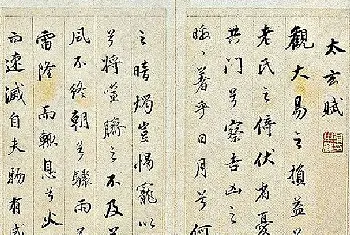 太玄賦
觀大易之損益
老氏之倚伏省憂
共門兮察吉凶之
曒〻著乎日月兮何
之暗燭豈愒寵以
兮将噬臍之不及
風不終朝兮驟雨
雷隆〻而輒息兮火
而速滅自夫物有